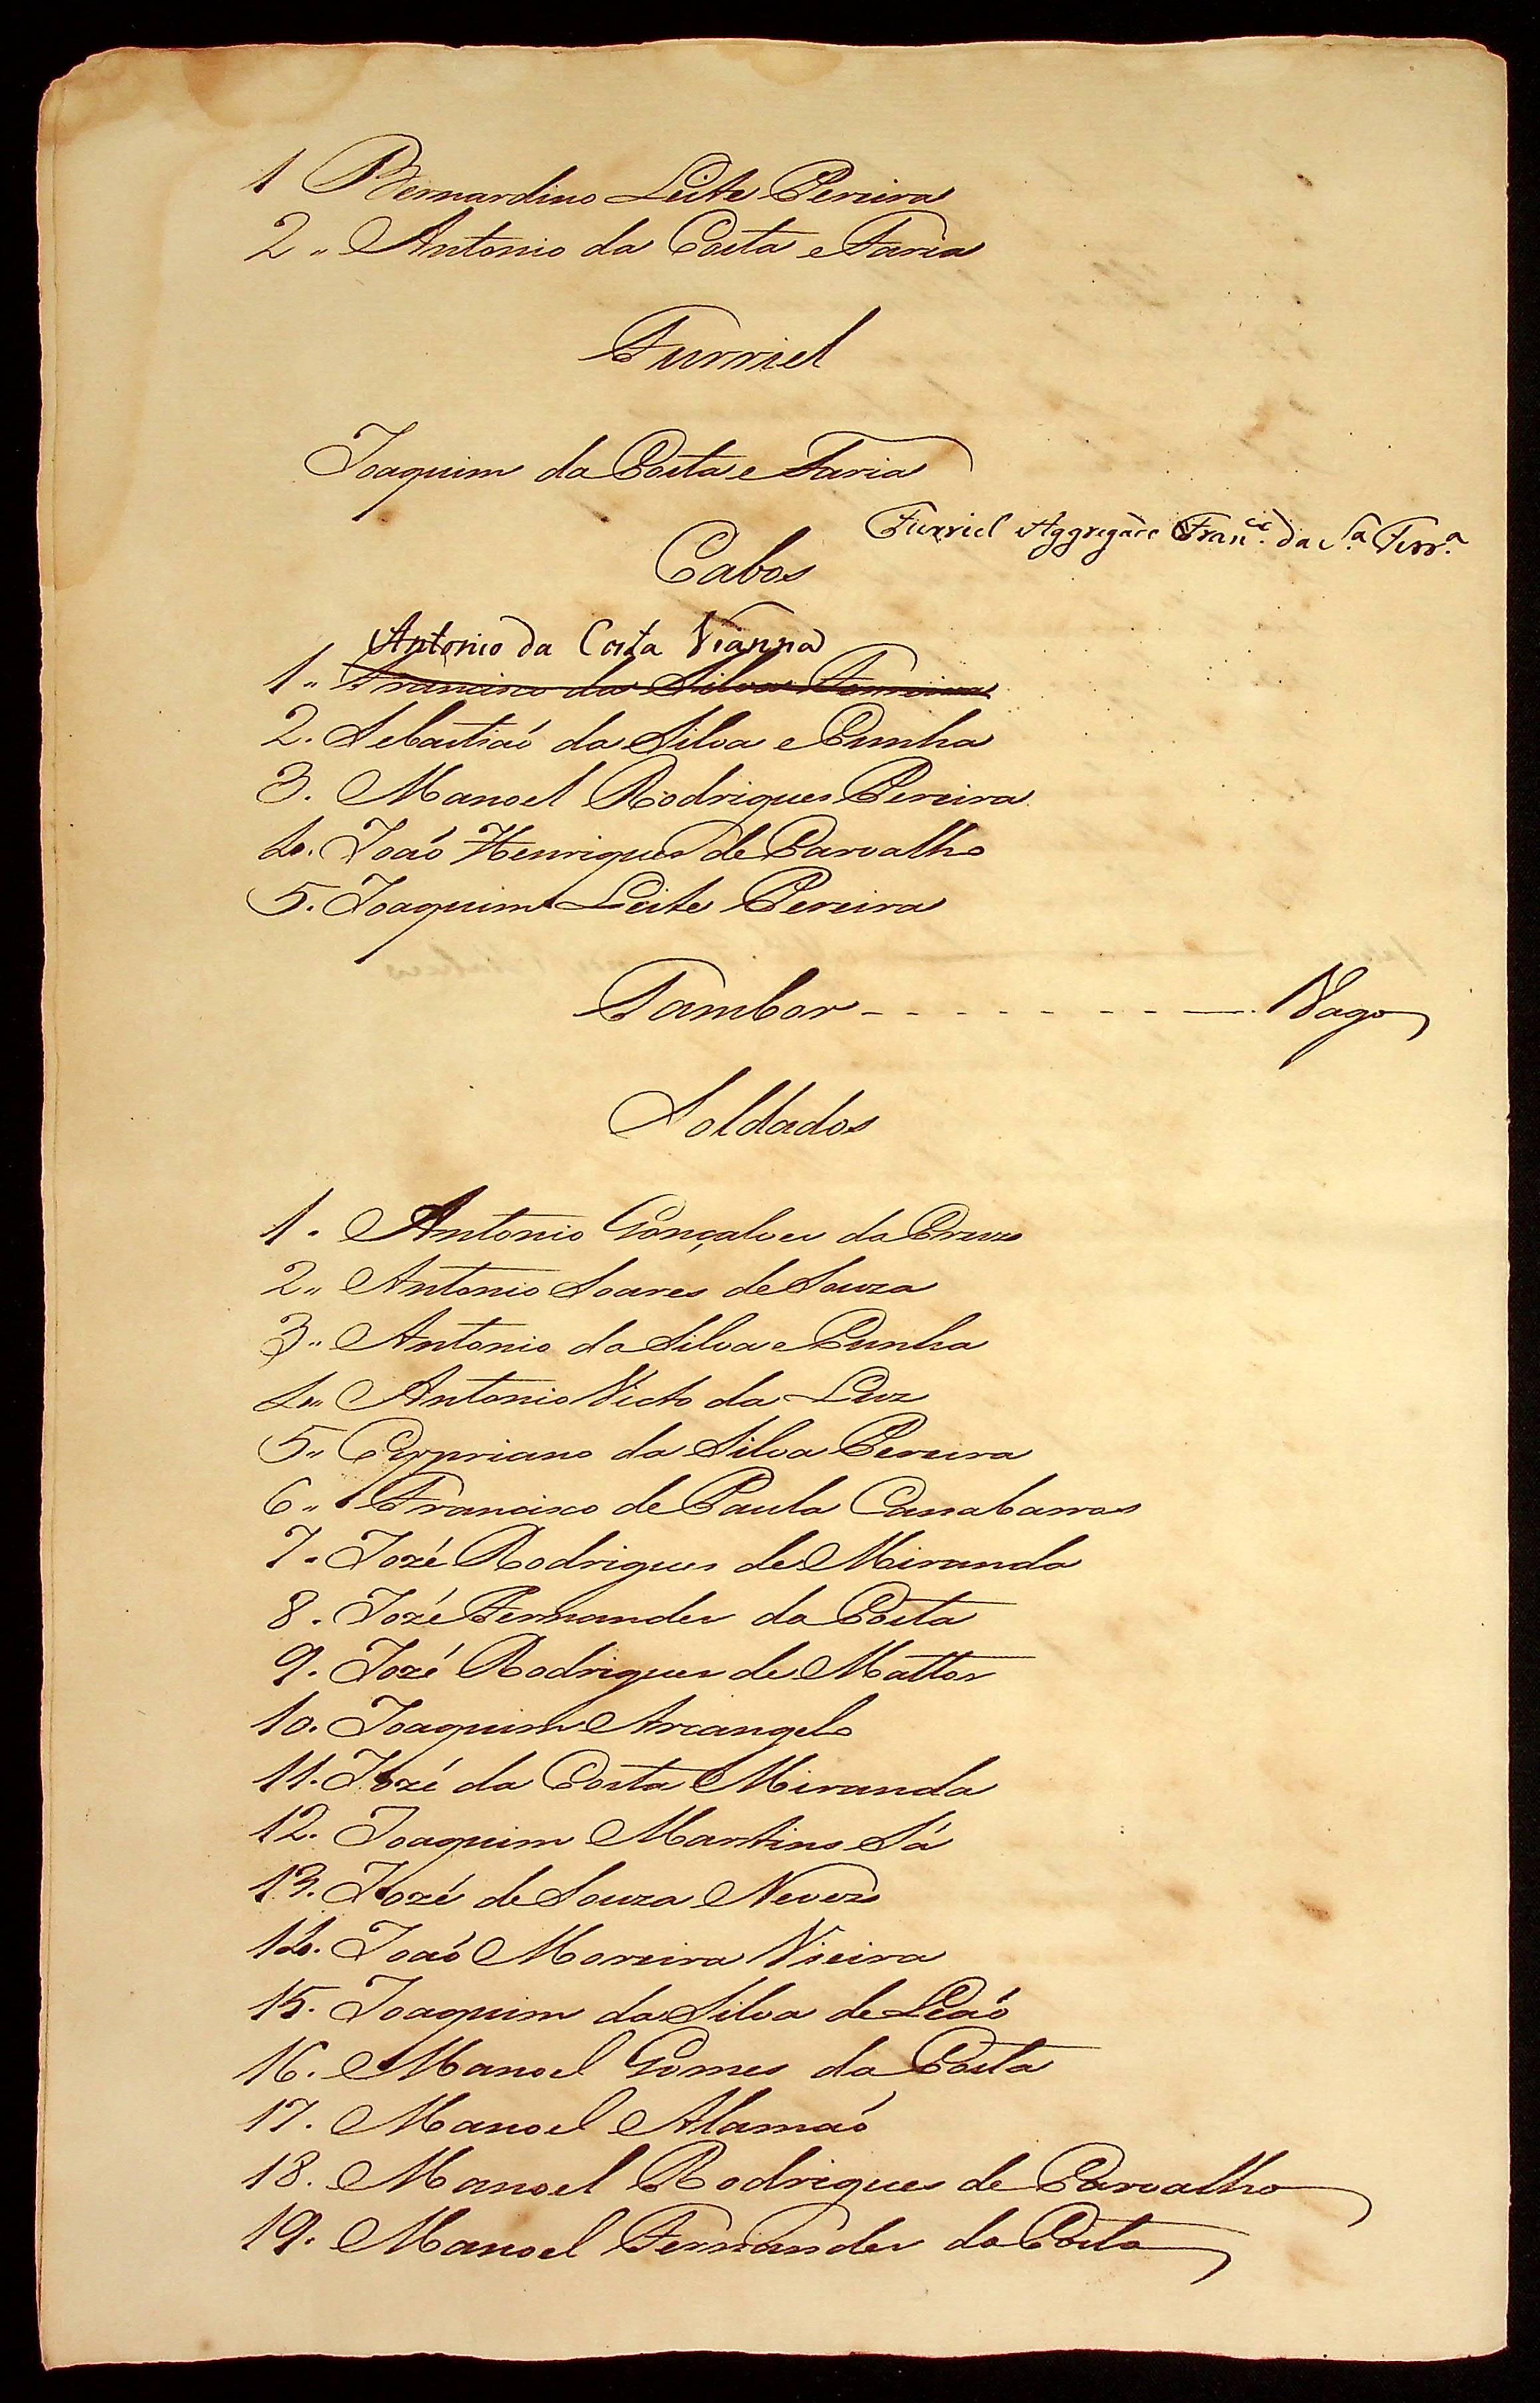 1 Bernardino Leite Pereira
2 " Antonio da Costa e Faria
Furriel
Joaquim da Costa e Faria
Furriel Aggregado Fran.co da S.a Ferr.a
Cabos
Antonio da Costa Vianna
1 " Francisco da Silva Ferreira
2. Sebastiaó da Silva e Cunha
3. Manoel Rodrigues Pereira
4. Joaó Henriques de Carvalho
5. Joaquim Leite Pereira
Tambor - - - - - - - - - Vago
Soldados
1 . Antonio Gonçalves da Cruz
2 " Antonio Soares de Souza
3 " Antonio da Silva e Cunha
4 " Antonio Victo da Luz
5 " Cypriano da Silva Pereira
6 " Francisco de Paula Canabarros
7 . Jozé Rodrigues de Miranda
8 . Jozé Fernandes da Costa
9 . Jozé Rodrigues de Mattos
10. Joaquim Arcangelo
11. Jozé da Costa Miranda
12. Joaquim Martins Sá
13. Jozé de Souza Neves
14. Joaó Moreira Vieira
15. Joaquim da Silva de Leaó
16. Manoel Gomes da Costa
17. Manoel Alamaó
18. Manoel Rodrigues de Carvalho
19. Manoel Fernandes da Costa